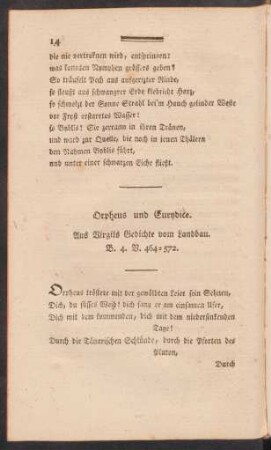 14
die nie vertroknen wird, entspreinzen:
was konnten Nymphen grössers geben?
So träufelt Pech aus aufgerizter Rinde,
so fleußt aus schwangrer Erde klebricht Harz,
so schmelzt der Sonne Strahl bei'm Hauch gelinder Weste
vor Frost erstarrtes Wasser:
so Byblis! Sie zerrann in ihren Tränen,
und ward zur Quelle, die noch in jenen Thälern
den Nahmen Byblis führt,
und unter einer schwarzen Eiche fließt.
Orpheus und Eurydice.
Aus Virgils Gedichte vom Landbau.
B. 4. V. 464-572.
Orpheus tröstete mit der gewölbten Leier sein Sehnen,
Dich, du süsses Weib! dich sang er am einsamen Ufer,
Dich mit dem kommenden, dich mit dem niedersinkenden
Tage!
Durch die Tänarischen Schlünde, durch die Pforten des
Pluton,
Durch